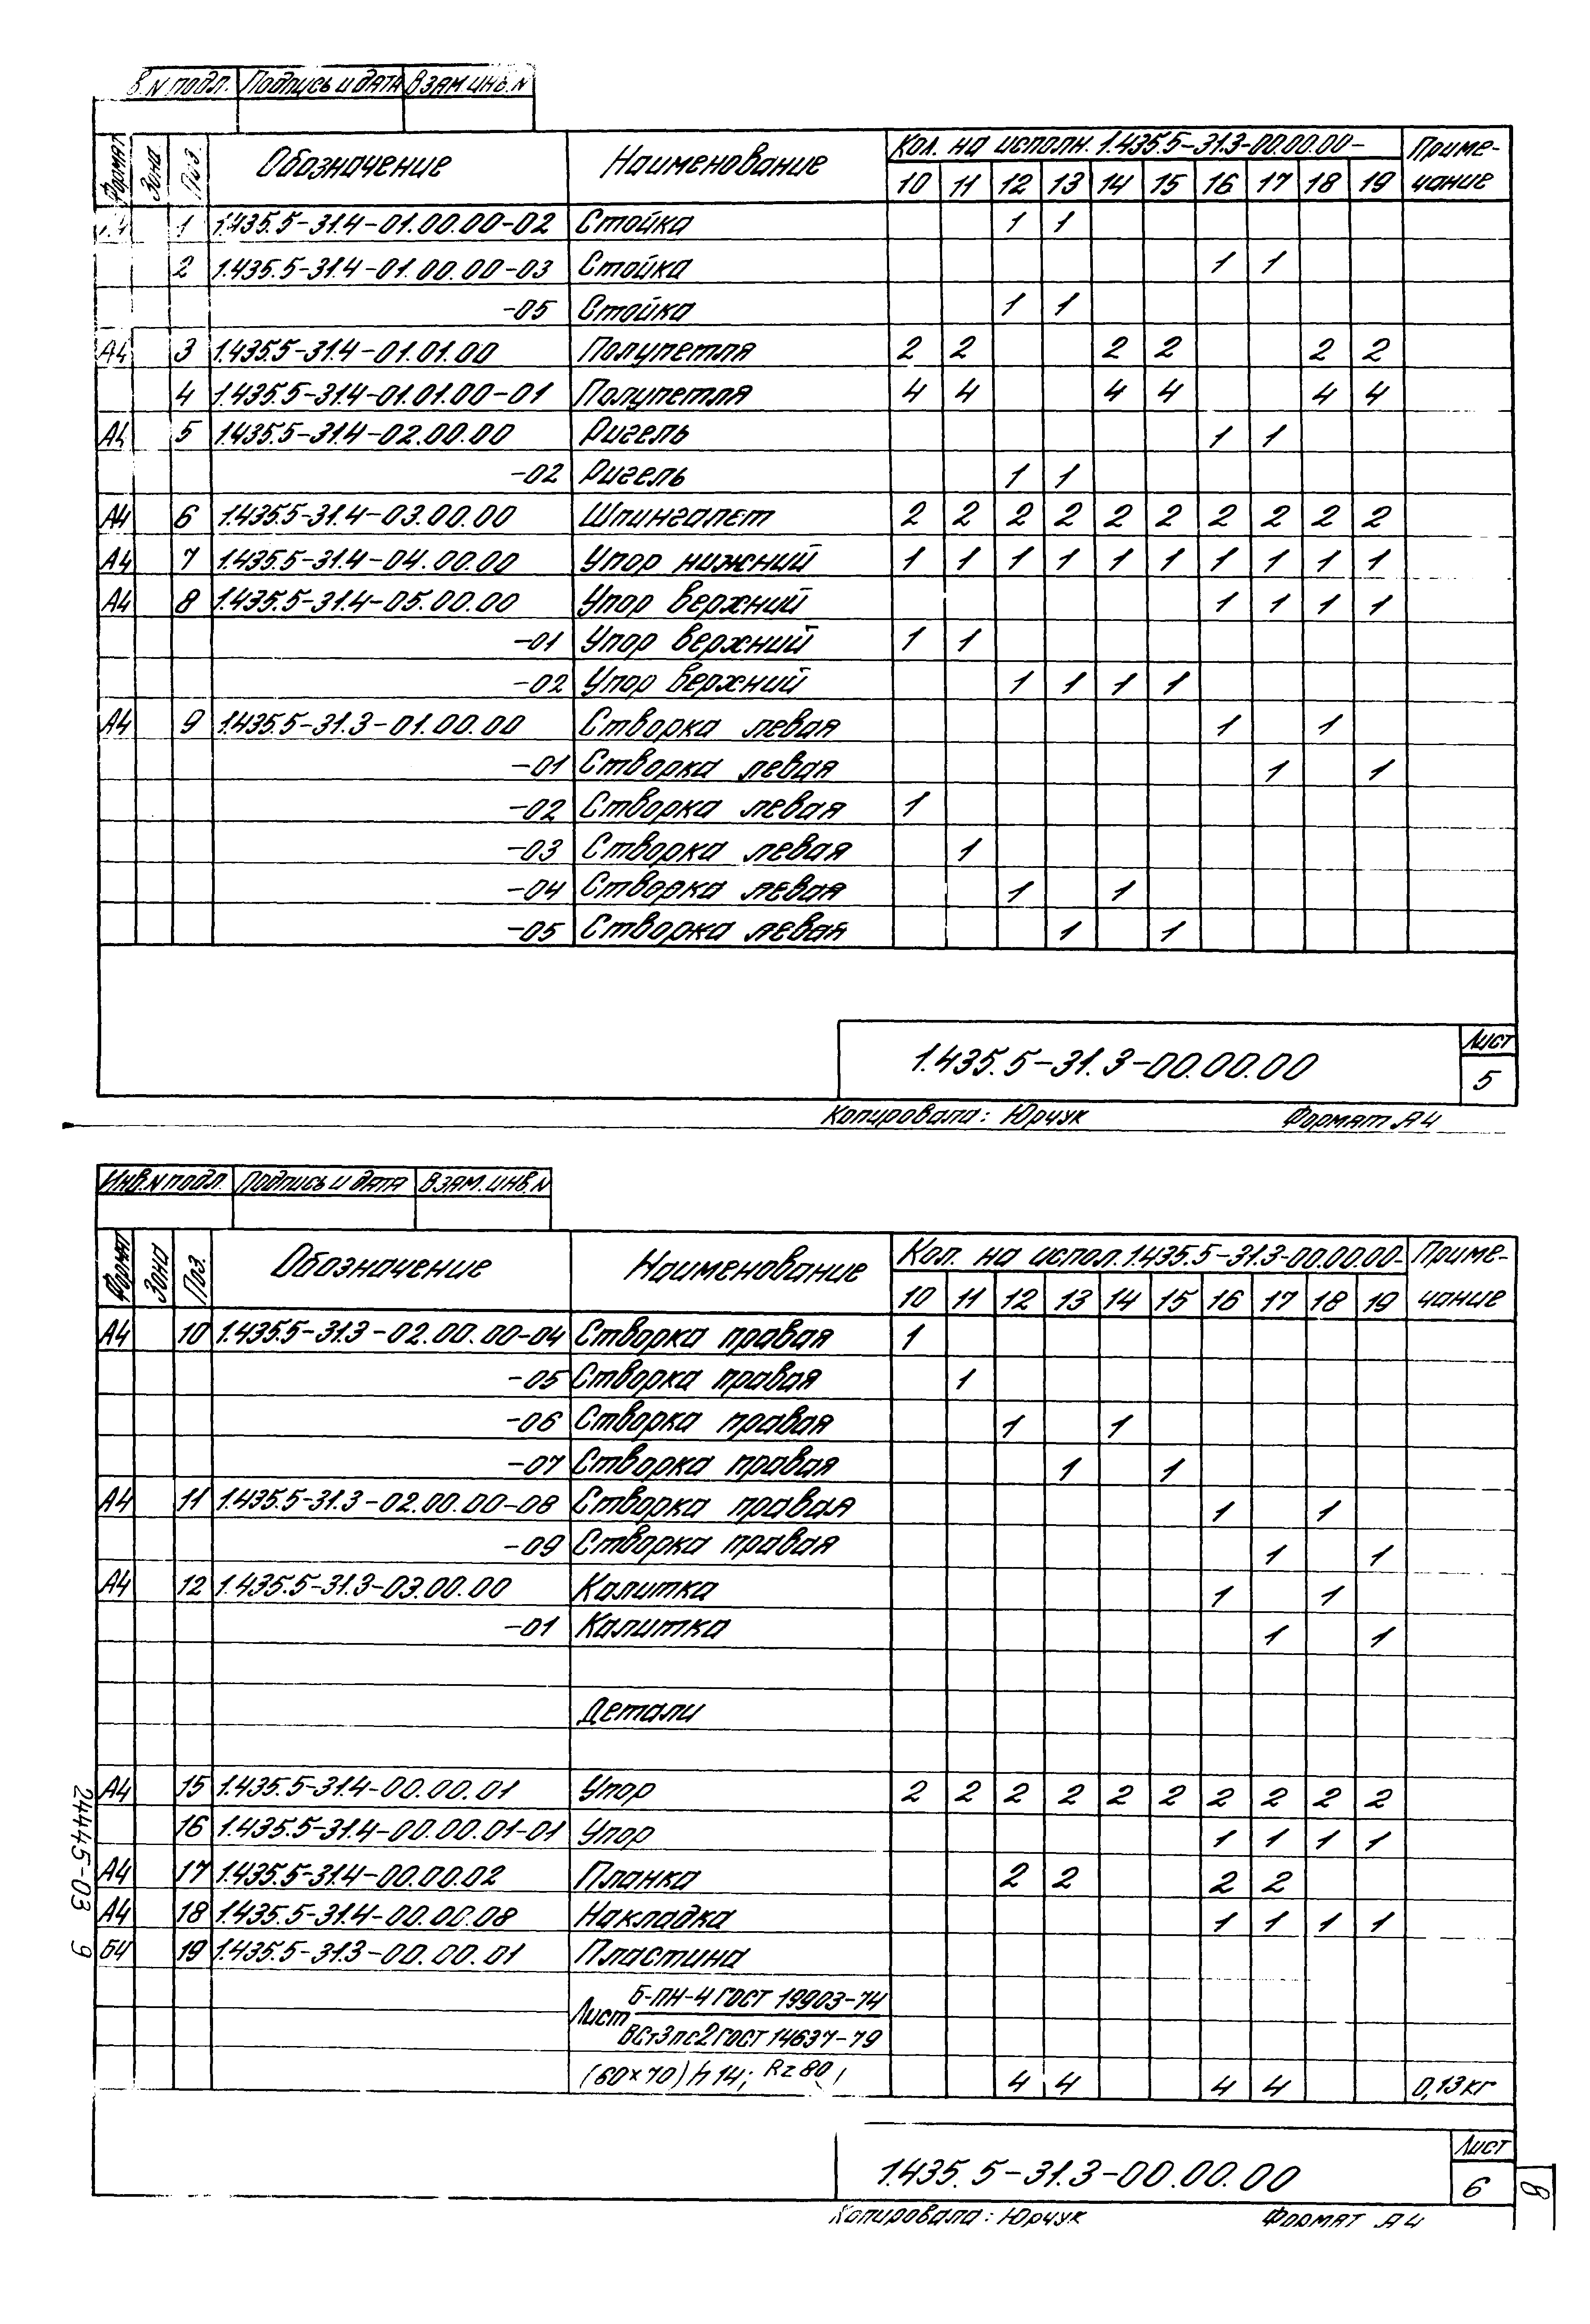 В.N подл. Подпись и дата Взам.инв.N
Формат Зона Поз. Обозначение Наименование Кол. на исполн. 1.435.5-31.3-00.00.00- Приме-
10 11 12 13 14 15 16 17 18 19 чание
1 1.435.5-31.4-01.00.00-02 Стойка 1 1
2 1.435.5-31.4-01.00.00-03 Стойка 1 1
-05 Стойка 1 1
А4 3 1.435.5-31.4-01.01.00 Полупетля 2 2 2 2 2 2
4 1.435.5-31.4-01.01.00-01 Полупетля 4 4 4 4 4 4
А4 5 1.435.5-31.4-02.00.00 Ригель 1 1
-02 Ригель 1 1
А4 6 1.435.5-31.4-03.00.00 Шпингалет 2 2 2 2 2 2 2 2 2 2
А4 7 1.435.5-31.4-04.00.00 Упор нижний 1 1 1 1 1 1 1 1 1 1
А4 8 1.435.5-31.4-05.00.00 Упор верхний 1 1 1 1
-01 Упор верхний 1 1
-02 Упор верхний 1 1 1 1
А4 9 1.435.5-31.3-01.00.00 Створка левая 1 1
-01 Створка левая 1 1
-02 Створка левая 1
-03 Створка левая 1
-04 Створка левая 1 1
-05 Створка левая 1 1
1.435.5-31.3-00.00.00 Лист
5
Копировала: Юрчук Формат А4
Инв.N подл. Подпись и дата Взам.инв.N
Формат Зона Поз. Обозначение Наименование Кол. на испол. 1.435.5-31.3-00.00.00- Приме-
10 11 12 13 14 15 16 17 18 19 чание
А4 10 1.435.5-31.3-02.00.00-04 Створка правая 1
-05 Створка правая 1
-06 Створка правая 1 1
-07 Створка правая 1 1
А4 11 1.435.5-31.3-02.00.00-08 Створка правая 1 1
-09 Створка правая 1 1
А4 12 1.435.5-31.3-03.00.00 Калитка 1 1
-01 Калитка 1 1
Детали
А4 15 1.435.5-31.4-00.00.01 Упор 2 2 2 2 2 2 2 2 2 2
16 1.435.5-31.4-00.00.01-01 Упор 1 1 1 1
А4 17 1.435.5-31.4-00.00.02 Планка 2 2 2 2
А4 18 1.435.5-31.4-00.00.08 Накладка 1 1 1 1
Б4 19 1.435.5-31.3-00.00.01 Пластина
Лист Б-ПН-4 ГОСТ 19903-74
ВСт3пс2 ГОСТ 14637-79
(60×70) h 14; Rz 80 4 4 4 4 0,13кг
1.435.5-31.3-00.00.00 Лист
6
Копировала: Юрчук Формат А4
24445-03 9
8